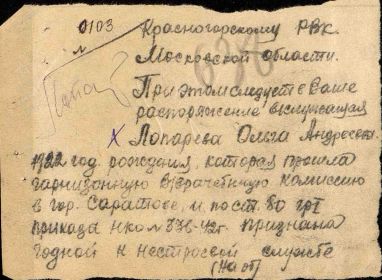 0103 Красногорскому РВК
Московской области.
При этом следует в Ваше
распоряжение в/служащая
Лопарева Ольга Андреевна
1922 год. рождения, которая прошла
гарнизонную в/врачебную комиссию
в гор. Саратове и пост. 80 гр I
приказа НКО № 336-42г. признана
годной к нестроевой службе